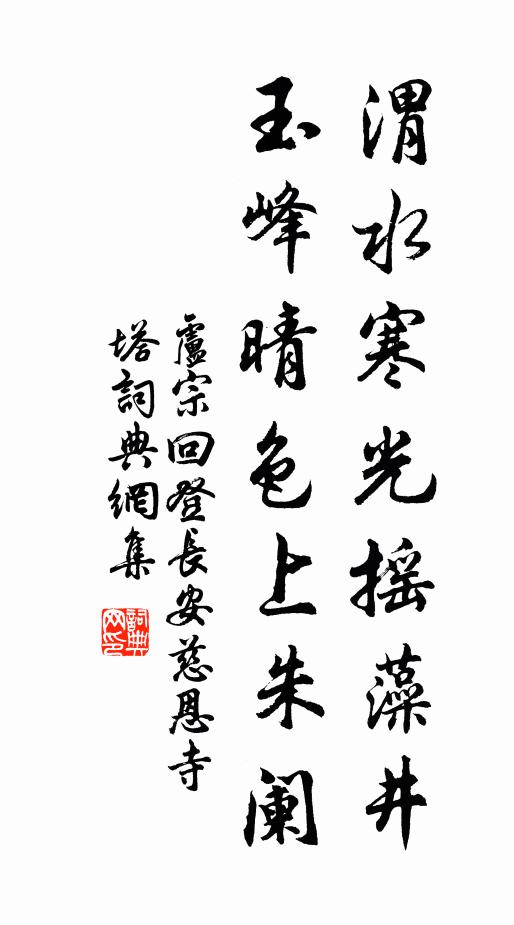 渭水寒光摇藻井
玉峰晴色上朱阑
盧宗回登長安慈恩寺
塔詞典網集
詞典
网印